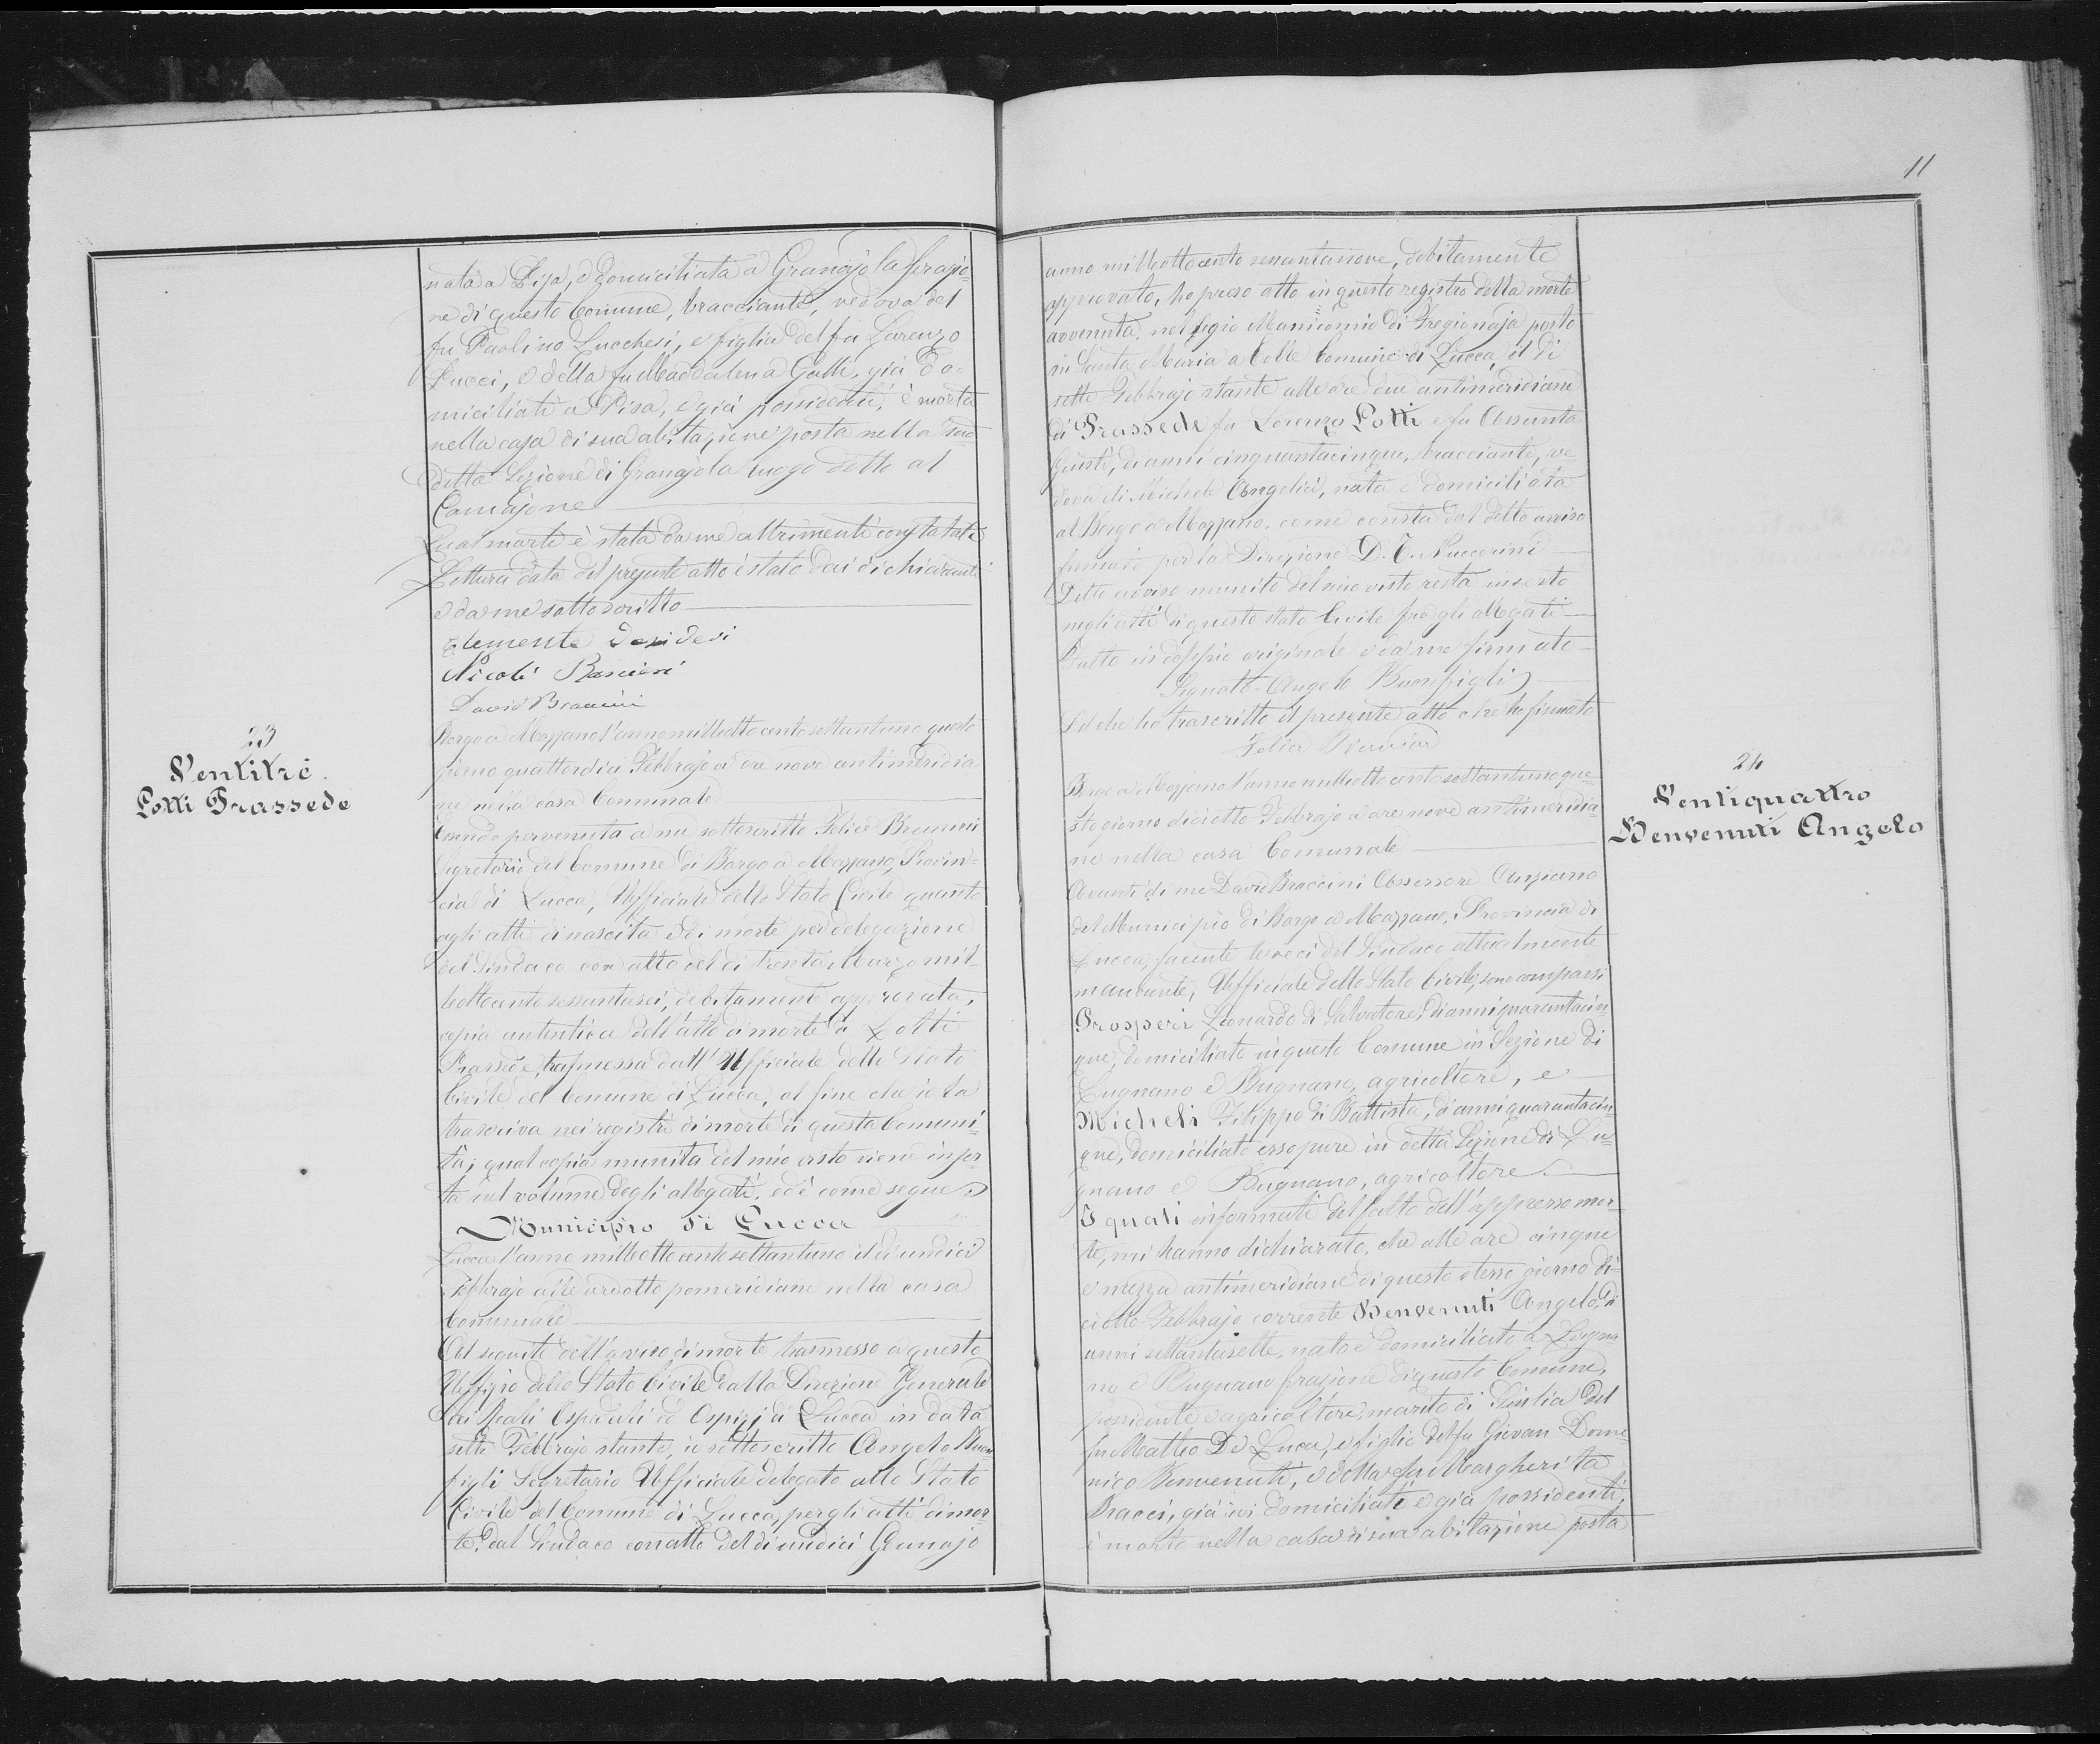 nata a Pisa, e domiciliata a Granajola frazio=
ne di questo Comune, bracciante, vedova del
fu Paolino Lucchesi, e figlia del fu Lorenzo
Lucci, e della fu Maddalena Galli, già do=
miciliati a Pisa, e già possidenti, è morta
nella casa di sua abitazione posta nella sud=
detta Sezione di Granajola luogo detto al
Camajone
Qual morte è stata da me altrimenti constatata
Lettura data del presente atto è stato dai dichiaranti
e da me sottoscritto
Clemente Desideri
Nicola Ranieri
David Braccini
23
Ventitrè
Lotti Prassede
Borgo a Mozzano l'anno milleottocento settantuno questo
giorno quattordici Febbrajo a ore nove antimeridia
ne nella casa Comunale
Essendo pervenuta a me sottoscritto Felice Brunini
Segretario del Comune di Borgo a Mozzano, Provin=
cia di Lucca, Uffiziale dello Stato Civile quanto
agli atti di nascita e di morte per delegazione
del Sindaco con atto del di trenta Marzo mil=
leottocento sessantasei, debitamente approvata,
copia autentica dell'atto di morte di Lotti
Prassede, trasmessa dall'Uffiziale dello Stato
Civile del Comune di Lucca, al fine che io la
trascriva nei registri di morte di questa Comuni=
tà; qual copia munita del mio visto viene inser=
ta nel volume degli allegati, ed è come segue
Municipio di Lucca
Lucca l'anno milleottocento settantuno il di undici
Febbrajo alle ore otto pomeridiane nella casa
Comunale
Al seguito dell'avviso di morte trasmesso a questo
Uffizio dello Stato Civile dalla Direzione Generale
dei Reali Ospedali ed Ospizi di Lucca in data
sette Febbrajo stante, io sottoscritto Angelo Buon
figli Segretario Uffiziale delegato allo Stato
Civile del Comune di Lucca, per gli atti di mor=
te, dal Sindaco con atto del di undici Gennajo
11
anno milleottocento sessantanove, debitamente
approvato, ho preso atto in questo registro della morte
avvenuta, nel Regio Manicomio di Fregionaja posto
in Santa Maria a Colle Comune di Lucca, il di
sette Febbrajo stante alle ore due antimeridiane
di Prassede fu Lorenzo Lotti e fu Assunta
Giusti, di anni cinquantacinque, bracciante, ve=
dova di Michele Angelici, nata e domiciliata
al Borgo a Mozzano, come consta dal detto avviso
firmato per la Direzione D. T. Nuccorini
Detto avviso munito del mio visto resta inserto
negli atti di questo Stato Civile fra gli allegati
Fatto in doppio originale e da me firmato
Segnato Angelo Buonfigli
Del che ho trascritto il presente atto che ho firmato
Felice Brunini
24
Ventiquattro
Benvenuti Angelo
Borgo a Mozzano l'anno milleottocento settantuno que=
sto giorno diciotto Febbrajo a ore nove antimeridia=
ne nella casa Comunale
Avanti di me David Braccini Assessore Anziano
del Municipio di Borgo a Mozzano, Provincia di
Lucca, facente le veci del Sindaco attualmente
mancante, Uffiziale dello Stato Civile, sono comparsi
Prosperi Leonardo di Salvatore, di anni quarantacin=
que, domiciliato in questo Comune in Sezione di
Lugnano e Bugnano, agricoltore, e
Micheli Filippo di Battista, di anni quarantacin=
que, domiciliato esso pure in detta Sezione di Lu=
gnano e Bugnano, agricoltore.
I quali informati del fatto dell'appresso mor=
te, mi hanno dichiarato, che alle ore cinque
e mezza antimeridiane di questo stesso giorno di=
ciotto Febbrajo corrente Benvenuti Angelo, di
anni settantasette, nato e domiciliato a Lugna
no e Bugnano frazione di questo Comune,
possidente e agricoltore, marito di Giulia del
fu Matteo De Luca, e figlio del fu Giovan Dome=
nico Benvenuti, e della fu Margherita
Bracci, già ivi domiciliati e già possidenti,
è morto nella casa di sua abitazione posta